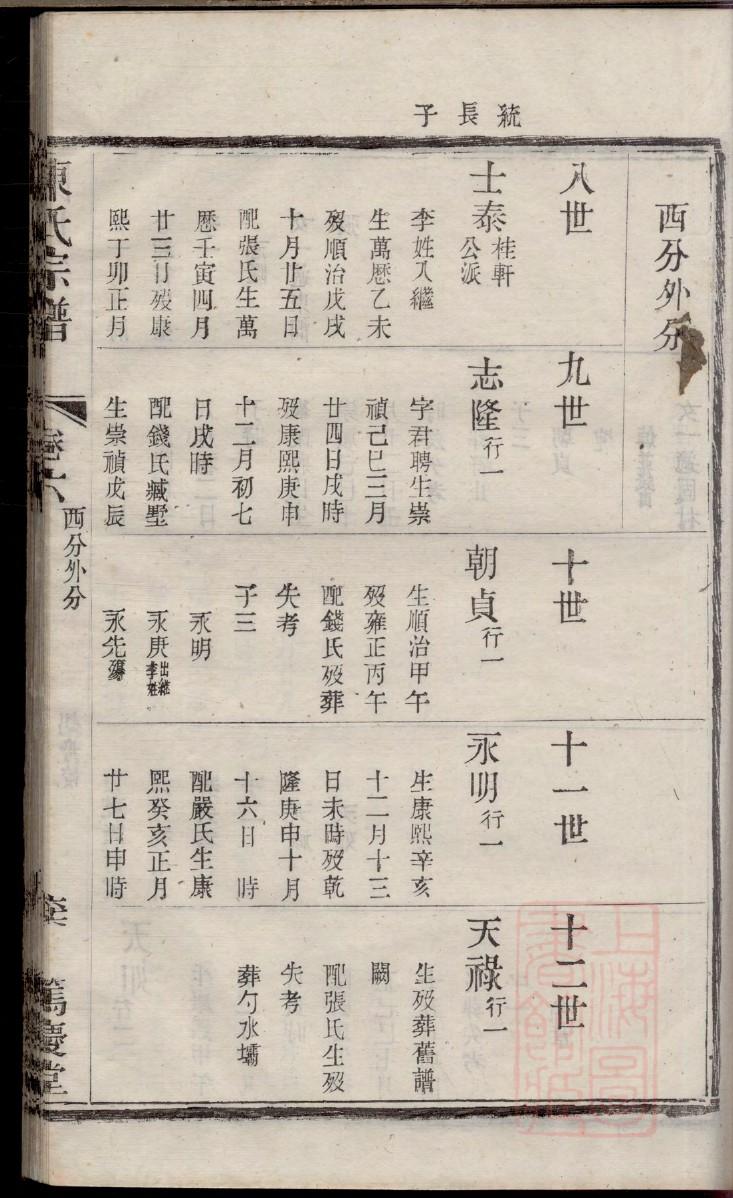 統長子
西分外分
八世
士泰桂軒公派
李姓入繼
生萬厯乙未
歿順治戊戌
十月廿五日
配張氏生萬
厯壬寅四月
廿三日歿康
熙丁卯正月
九世
志隆行一
字君聘生崇
禎己巳三月
廿四日戌時
歿康熙庚申
十二月初七
日戌時
配錢氏臧墅
生崇禎戊辰
十世
朝貞行一
生順治甲午
歿雍正丙午
配錢氏歿葬
失考
子三
永明
永庚出繼李姓
永先殤
十一世
永明行一
生康熙辛亥
十二月十三
日未時歿乾
隆庚申十月
十六日 時
配嚴氏生康
熙癸亥正月
廿七日申時
十二世
天祿行一
生歿葬舊譜
闕
配張氏生歿
失考
葬勺水壩
陳氏宗譜
卷六
西分外分
篤慶堂